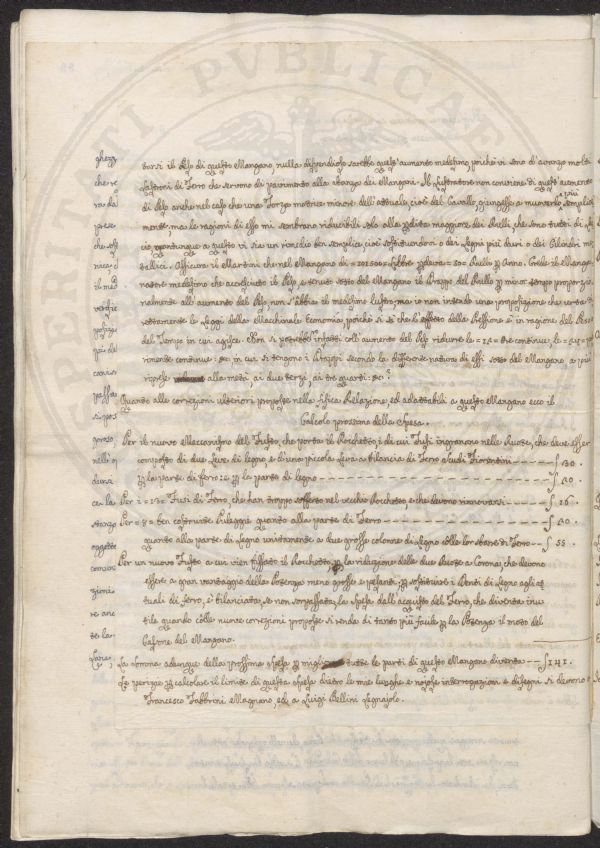 PERITATI PVBLICAE
tarsi il Peso di questo Mangano, nulla dispendioso sarebbe quest'aumento medesimo, poiché vi sono d'avanzo molti
Lastroni di Ferro che servono di pavimento alla stanza dei Mangani. Il Lustratore non conviene di quest'aumento
di Peso anche nel caso che una Forza motrice minore dell'attuale, cioè del Cavallo, giungesse a muoverlo più semplice
mente, ma le ragioni di esso mi sembrano riducibili solo alla perdita maggiore dei Rulli, che sono tutti di
cio quantunque a questo vi sia un rimedio ben semplice, cioè sostituendovi o dei Legni più duri o dei Cilindri me
tallici. Assicura il Martini che nel Mangano di = 101500 = Libbre perdeva = 300 Rulli per Anno. Crede il Manga
natore medesimo che accresciuto il Peso, e tenuto sotto del Mangano il Drappo del Rullo per minor tempo proporzio
nalmente all'aumento del Peso, non s'abbia il medesimo lustro; ma io non intendo una proposizione che urta di
rettamente le Leggi della Macchinale Economia, poiché si sa che l'effetto della Pressione è in ragione del Peso e
del Tempo in cui agisce. Non si potrebbe infatti coll'aumento del Peso ridurre le = 12 = Ore continue, le = 24 = pa
rimente continue &c: in cui si tengono i Drappi secondo la differente natura di essi sotto del Mangano a più
riprese alla metà ai due terzi ai tre quarti &c?
Quanto alle correzioni ulteriori proposte nella fisica Relazione, ed adattabili a questo Mangano ecco il
Calcolo prossimo della Spesa.
Per il nuovo Meccanismo del Fusto, che porta il Rocchetto, i di cui Fusi ingranano nelle Ruote, che deve esser
composto di due Leve di legno, e d'una piccola Leva a bilancia di Ferro Scudi Fiorentini ʃ 30.
per la parte di ferro: e per la parte di legno ʃ 10.
Per = 12 = Fusi di Ferro, che han troppo sofferto nel vecchio Rocchetto, e che devono rinnovarsi ʃ 16
Per = 8 = ben costruite Pulegge quanto alla parte di Ferro ʃ 30
quanto alla parte di Legno unitamente a due grosse colonne di Legno colle loro staffe di Ferro ʃ 55
Per un nuovo Fusto a cui vien fissato il Rocchetto, per la riduzione delle due Ruote a Corona, che devono
essere a gran vantaggio della Potenza meno grosse e pesanti, per sostituire i Denti di Legno agli at
tuali di ferro, è bilanciata, se non sorpassata, la spesa dall'acquisto del Ferro, che diventa inu
tile quando colle nuove correzioni proposte si renda di tanto più facile per la Potenza il moto del
Cassone del Mangano.
La somma adunque della prossima spesa per tutte le parti di questo Mangano diventa ʃ 141.
Le perizie per calcolare il limite di questa spesa dietro le mie lunghe e noiose interrogazioni e disegni si devono a
Francesco Fabbrini Magnano, ed a Luigi Bellini Legnajolo.